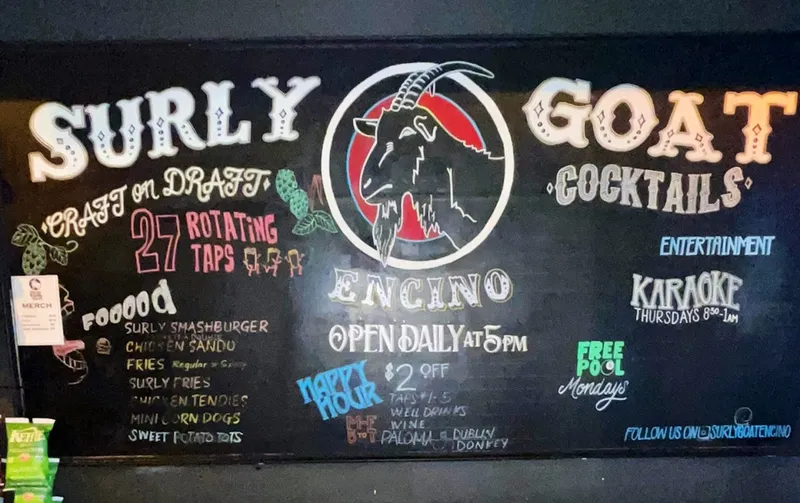 SURLY GOAT
CRAFT on DRAFT
27 ROTATING TAPS
MERCH
FOOOOD
SURLY SMASHBURGER
CHICKEN SANDO
FRIES Regular or
SURLY FRIES
CHICKEN TENDIES
MINI CORN DOGS
SWEET POTATO TOTS
KETTLE
ENCINO
OPEN DAILY AT 5PM
HAPPY HOUR
$2 OFF
TAPS #1-5
WELL DRINKS
WINE
PALOMA & DUBLIN
DONKEY
COCKTAILS
ENTERTAINMENT
KARAOKE
THURSDAYS 8:30-1AM
FREE
POOL
Mondays
FOLLOW US ON @SURLYGOATENCINO